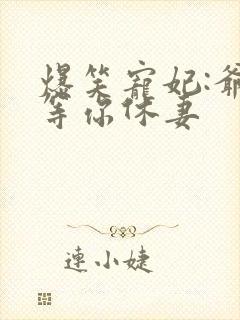 爆笑寵妃:爺
等你休妻
連小婕